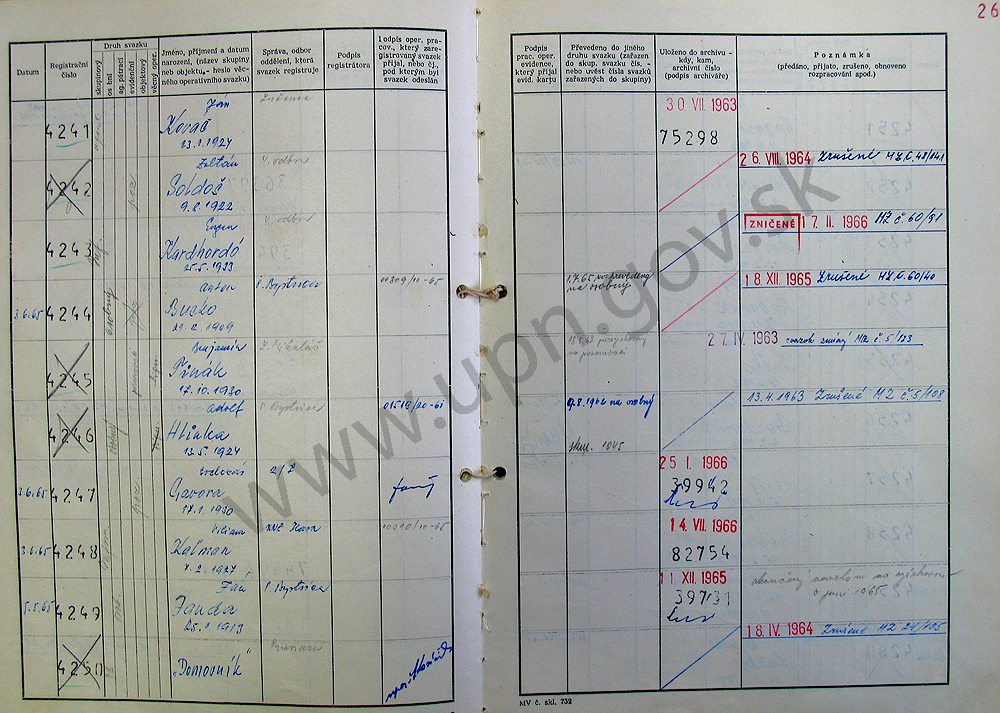 26
Datum
Registrační číslo
Druh svazku
skupinový
os tní
ag. pátrací
evidenční
objektový
věcný oper.
Jméno, příjmení a datum
narození, (název skupiny
neb objektu, - heslo věc-
ného operativního svazku)
Správa, odbor
oddělení, která
svazek registruje
Podpis
registrátora
Podpis oper. pra-
cov., který zare-
gistrovaný svazek
přijal, nebo čj.
pod kterým byl
svazek odeslán
Podpis
prac. oper.
evidence,
který přijal
evid. kartu
Převedeno do jiného
druhu svazku (zařazen
do skup. svazku čís. -
nebo uvést čísla svazků
zařazených do skupiny)
Uloženo do archivu -
kdy, kam,
archivní číslo
(podpis archiváře)
Poznámka
(předáno, přijato, zrušeno, obnoveno
rozpracování apod.)
4241
Ján
Kováč
23.1.1924
30 VII. 1963
75298
4242
Zoltán
Soldoš
9.8.1922
V. odbor
26. VIII. 1964 Zrušené MZ.Č.48/141
4243
Eugen
Kardhordó
25.5.1933
V. odbor
ZNIČENÉ 17. II. 1966 MZ č.60/91
3.6.65
4244
Anton
Bucko
21.2.1909
B. Bystrica
00309/10-65
1.7.65
na osobný
18. XII. 1965 Zrušené MZ.Č.60/40
4245
Benjamín
Pinák
17.10.1930
L. Mikuláš
27. IV. 1963
MZ č.5/123
4246
Adolf
Hlinka
13.5.1924
B. Bystrica
01519/20-61
9.8.1962 na osobný
skup. 1045
13.4.1963 Zrušené MZ č.5/108
3.6.65
4247
Gavora
17.1.1930
2/Z
25 I. 1966
39942
3.6.65
4248
Viliam
Kaľman
7.2.1927
00010/10-65
14. VII. 1966
82754
5.5.65
4249
Ján
Janda
1913
B. Bystrica
11. XII. 1965
39731
4250
„Domovník"
18. IV. 1964 Zrušené MZ 24/105
MV č. skl. 732
www.upn.gov.sk